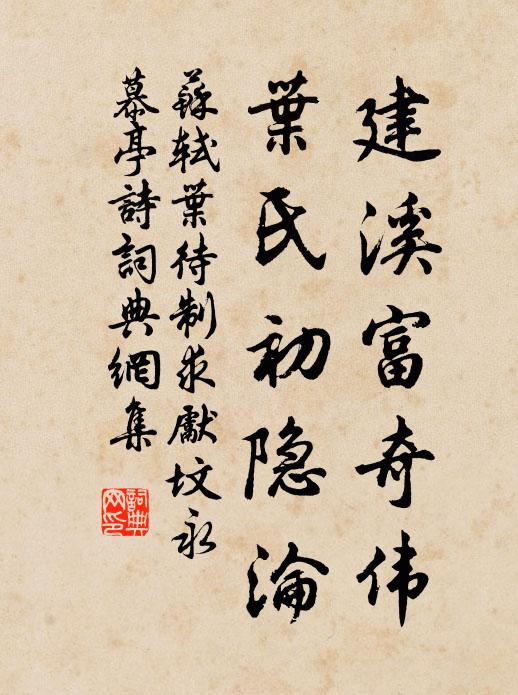 建溪富奇伟
葉氏初隐淪
蘇軾葉待制求獻坟永
慕亭詩詞典網集
詞典網印